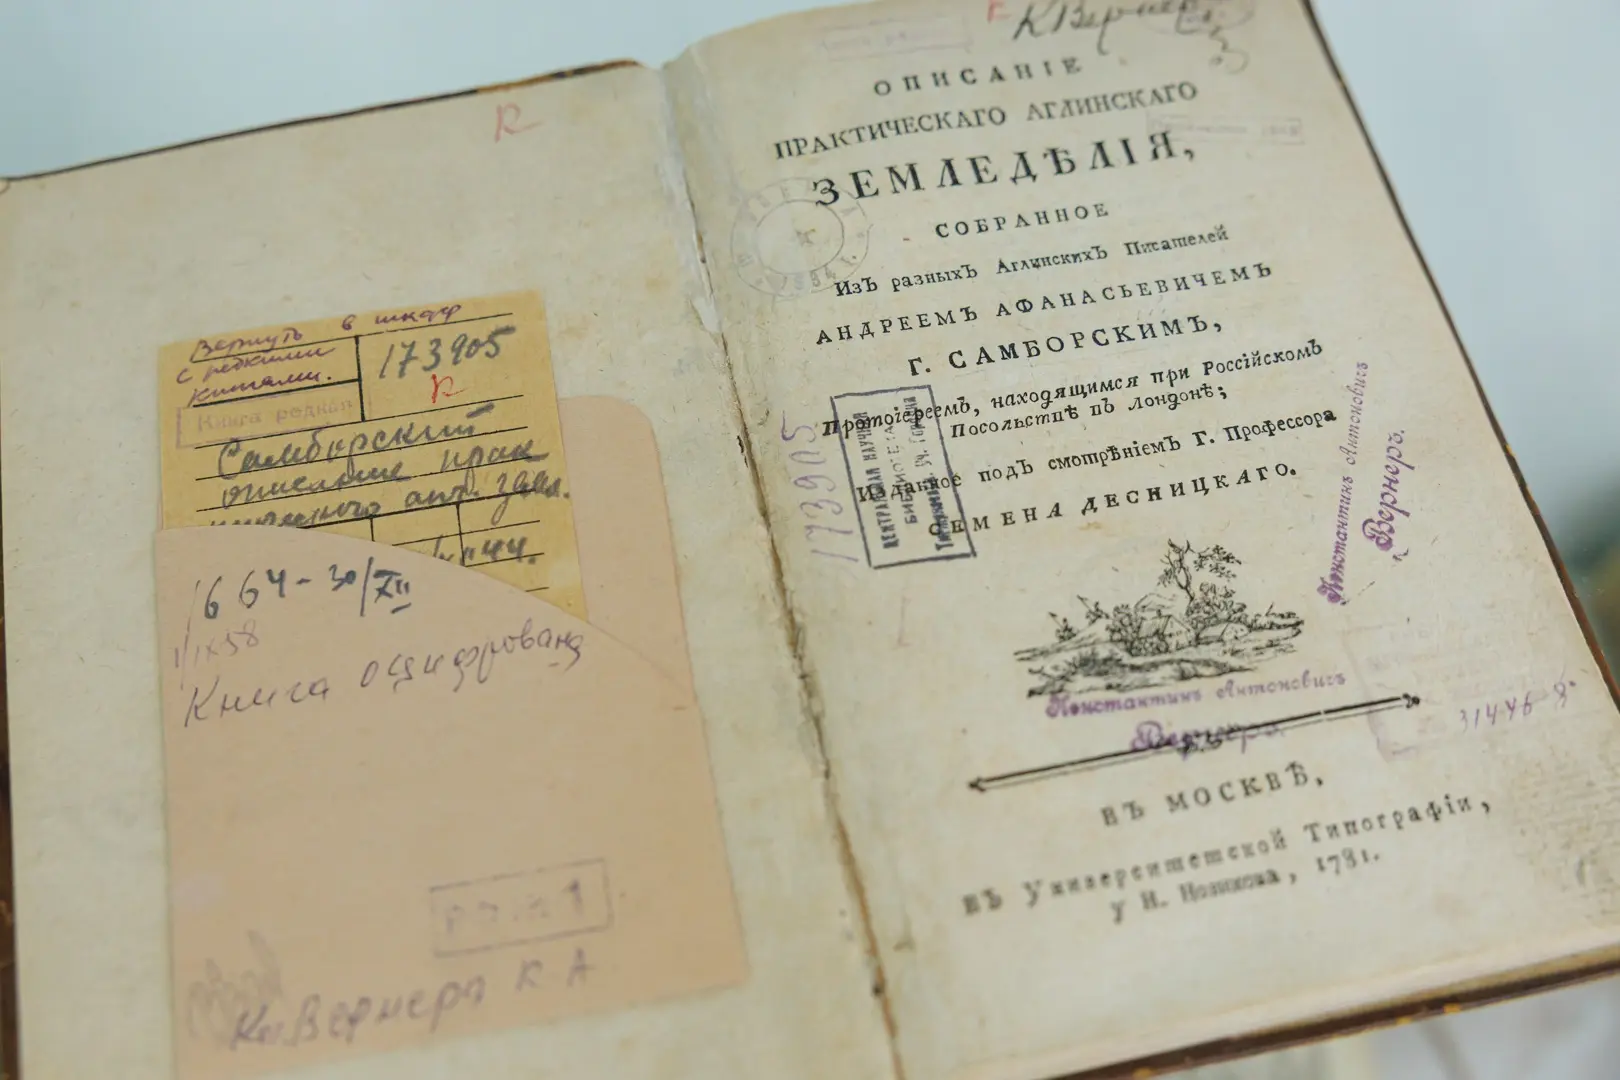 R
Вернуть в шкаф
с редкими
книгами.
Книга редкая
173905
R
Самборский
описание прак
англ. земл.
1664-30/XII
1/IX58
Книга оцифрована
Кн. Вернера К А
К Вернер
ОПИСАНІЕ
ПРАКТИЧЕСКАГО АГЛИНСКАГО
ЗЕМЛЕДѢЛІЯ,
СОБРАННОЕ
ИзЪ разныхЪ АглинскихЪ Писателей
АНДРЕЕМЪ АФАНАСЬЕВИЧЕМЪ
Г. САМБОРСКИМЪ,
ПротоіереемЪ, находящимся при РоссійскомЪ
Посольствѣ въ Лондонѣ;
Изданное подЪ смотрѣніемЪ Г. Профессора
СЕМЕНА ДЕСНИЦКАГО.
173905
ЦЕНТРАЛЬНАЯ НАУЧНАЯ
БИБЛИОТЕКА
Константинъ Антоновичъ
Вернеръ.
Константинъ Антоновичъ
Вернеръ.
31446
ВЪ МОСКВѢ,
вЪ Университетской Типографіи,
у Н. Новикова, 1781.